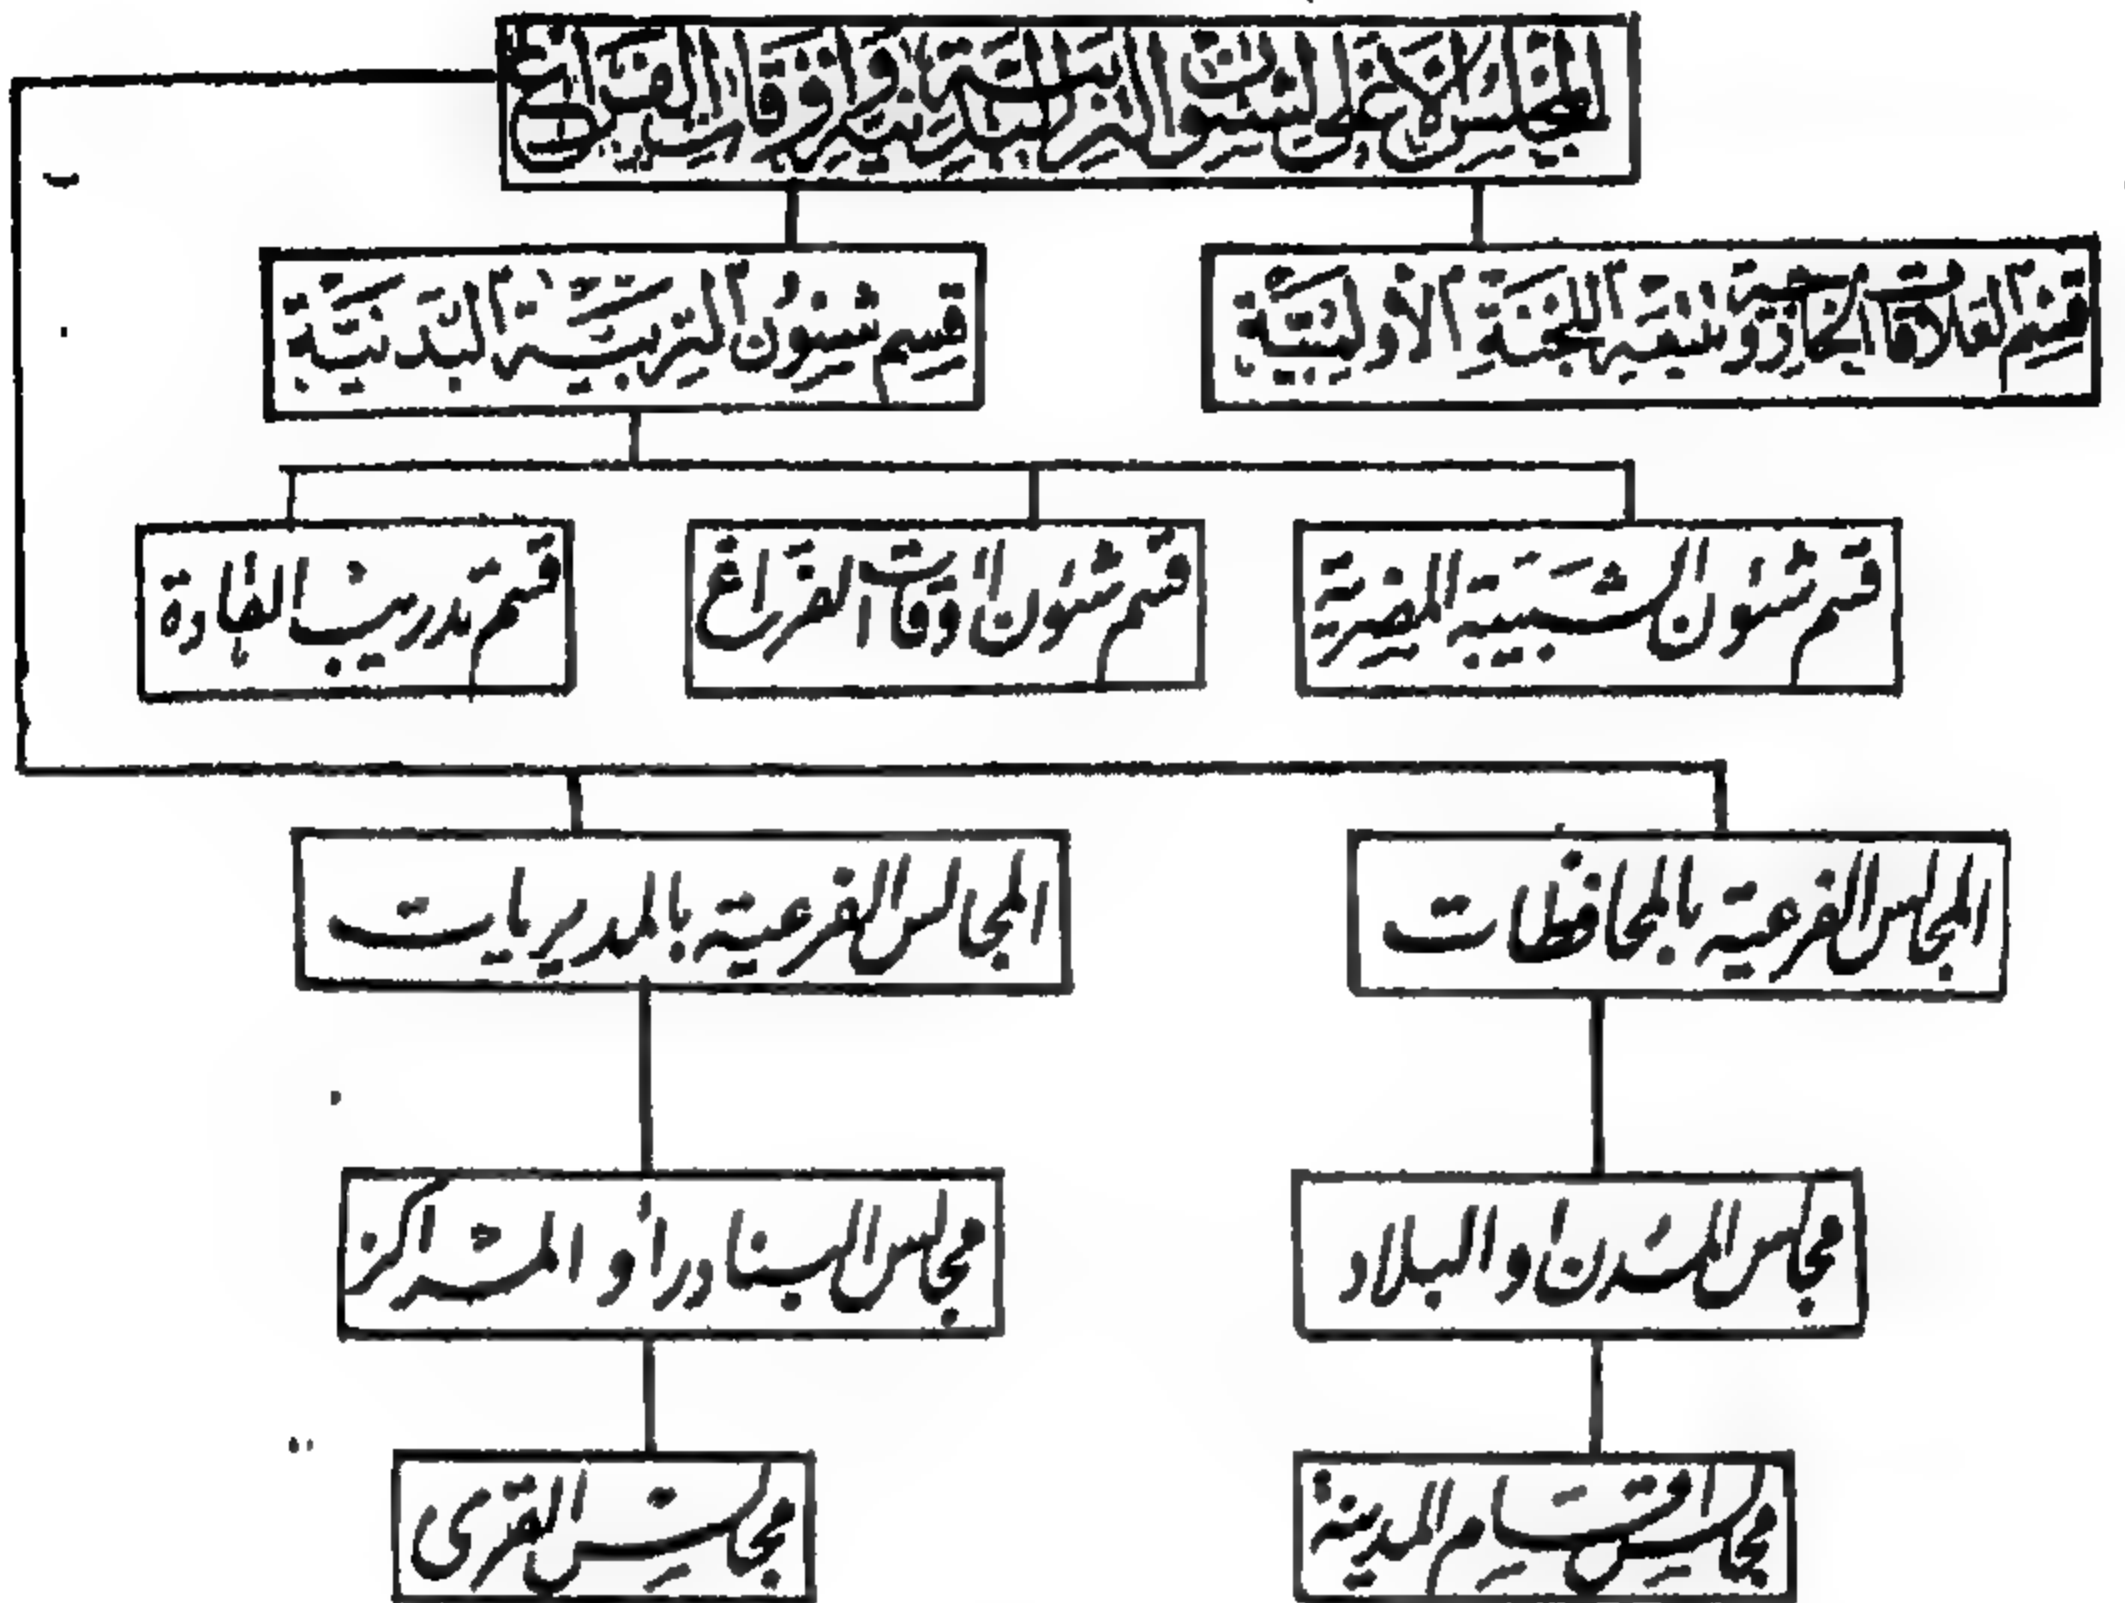 المجلس الأعلى لشئون التربية البدنية وأوقات الفراغ
قسم العلاقات الخارجية واللجنة الأولمبية
قسم شئون التربية البدنية
قسم شئون الشبيبة المصرية
قسم شئون أوقات الفراغ
قسم تدريب القادة
المجالس الفرعية بالمحافظات
المجالس الفرعية بالمديريات
مجالس المدن أو البلاد
مجالس البنادر أو المراكز
مجالس أقسام المدينة
مجالس القرى